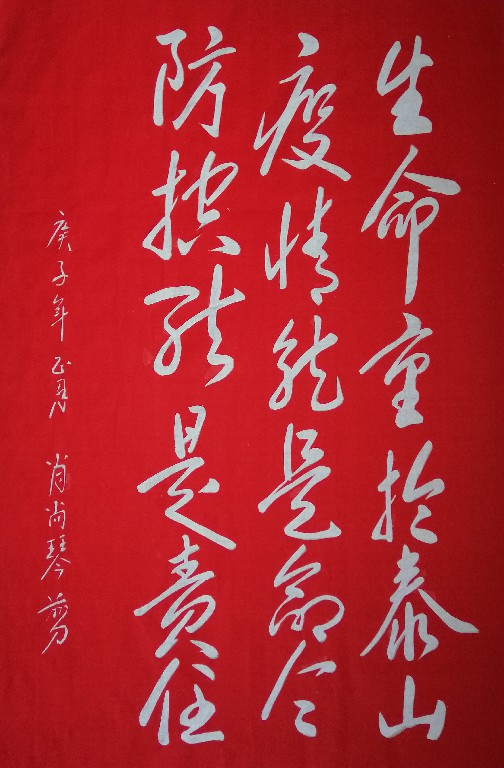 生命重於泰山
疫情就是命令
防控就是责任
庚子年正月 肖尚琴剪